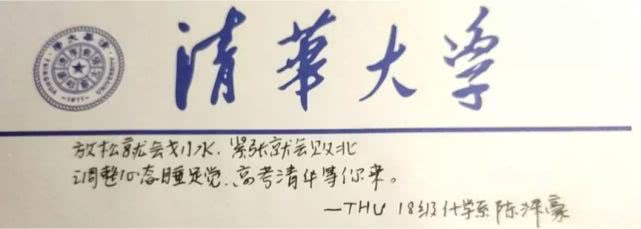 清華大学
放松就会划水，紧张就会败北
调整心态睡足觉，高考清华等你来。
—THU 18级化学系陈泽豪